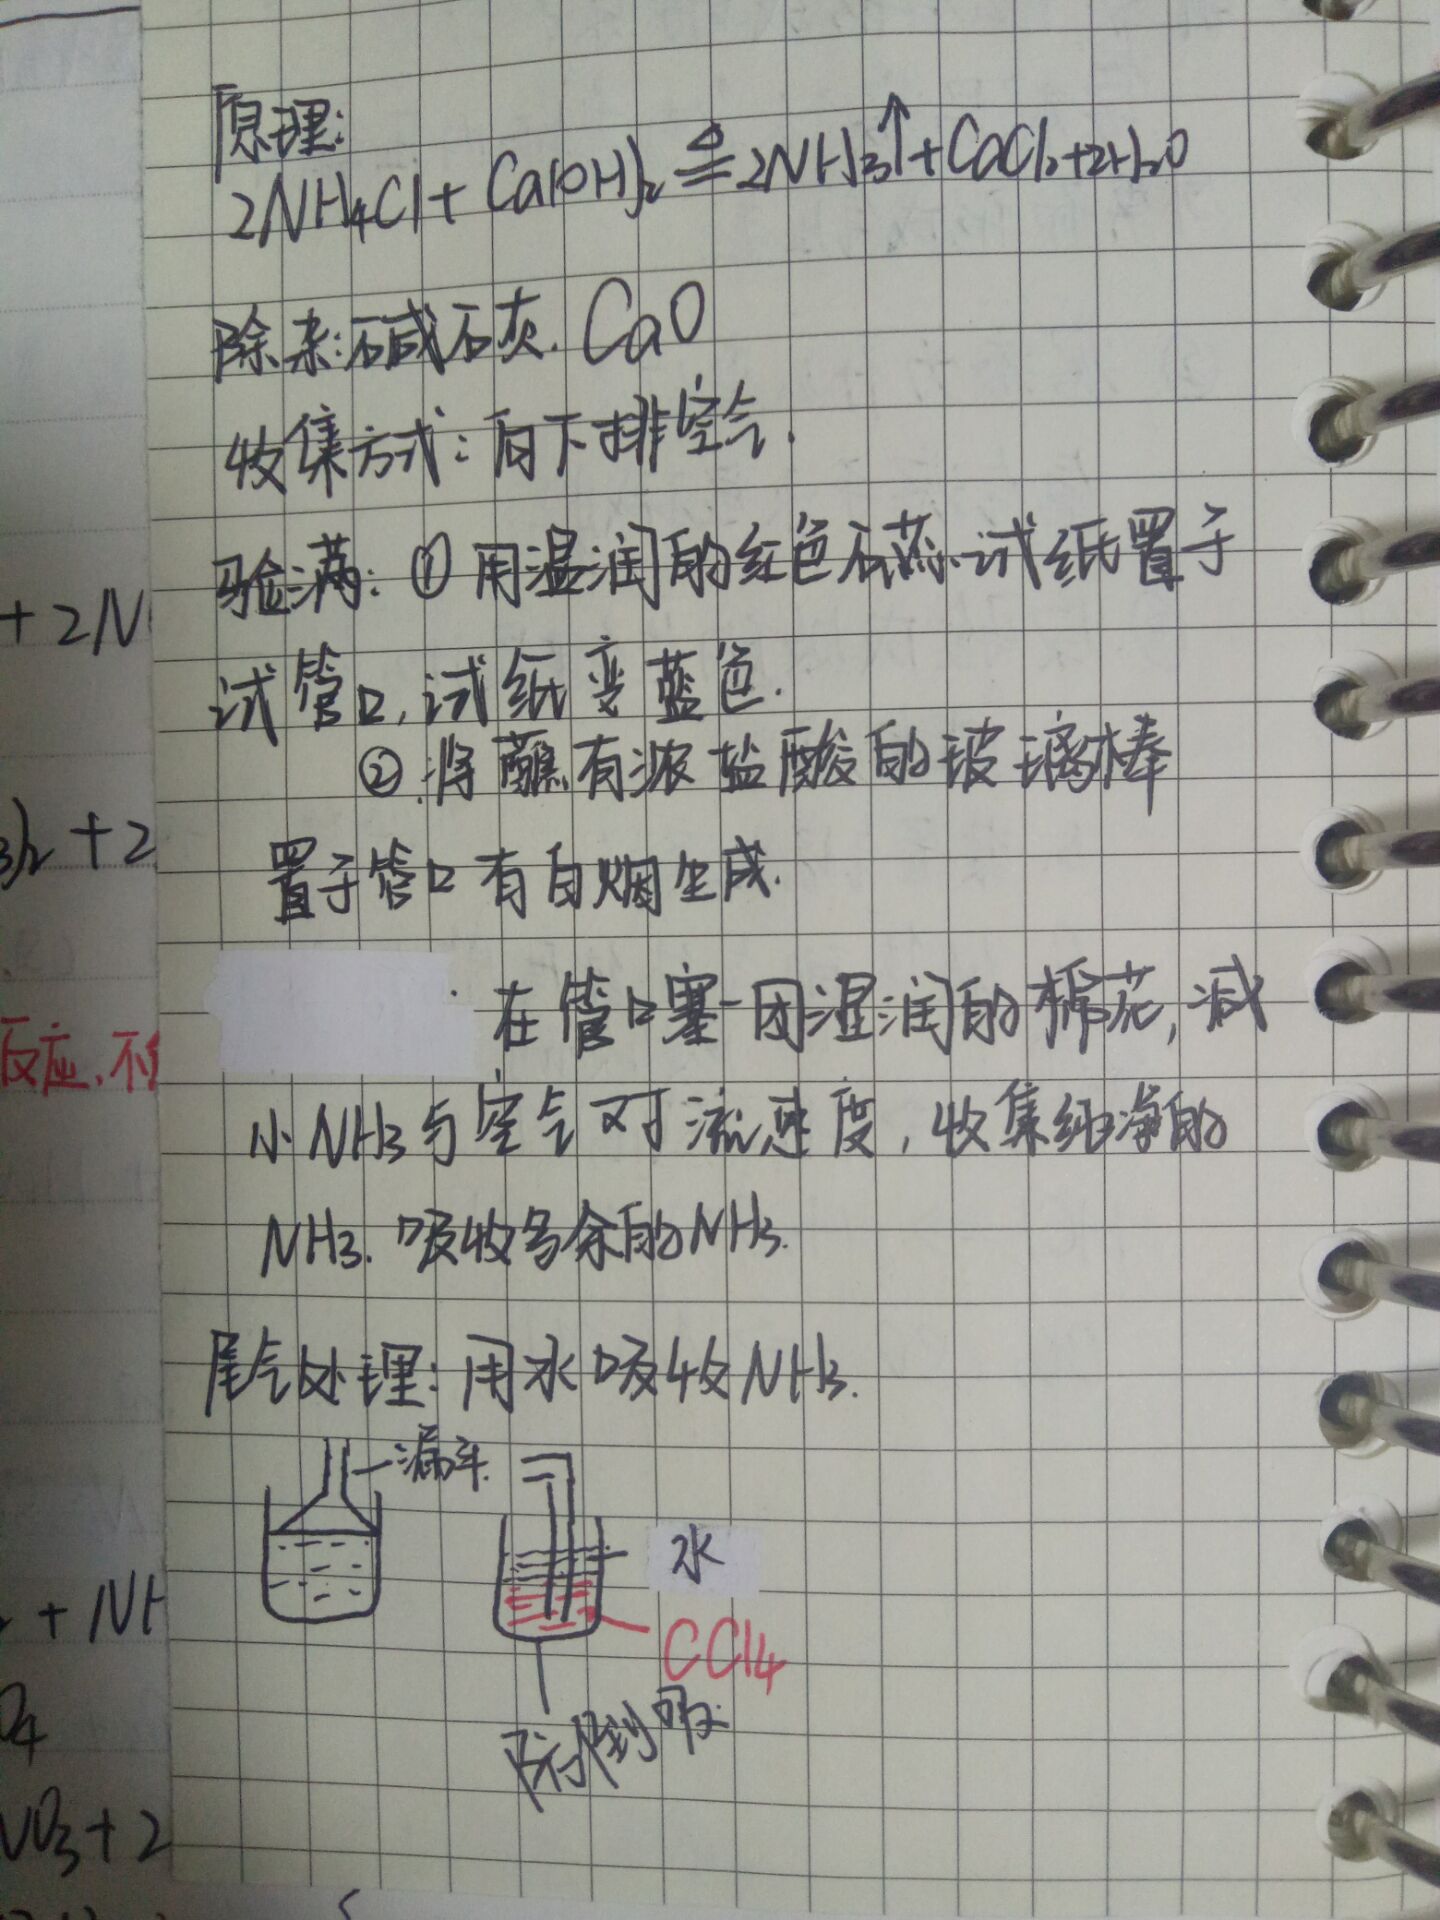 原理:
2NH₄Cl + Ca(OH)₂ ≜ 2NH₃↑ + CaCl₂ + 2H₂O
除杂:碱石灰. CaO
收集方式:向下排空气.
验满: ① 用湿润的红色石蕊试纸置于
试管口,试纸变蓝色.
②.将蘸有浓盐酸的玻璃棒
置于管口有白烟生成.
在管口塞一团湿润的棉花,减
小NH₃与空气对流速度,收集纯净的
NH₃.吸收多余的NH₃.
尾气处理:用水吸收NH₃.
漏斗.
水
CCl₄
防倒吸.
+ 2N
3)₂ + 2
反应,不
+ NH
O₄
NO₃ + 2